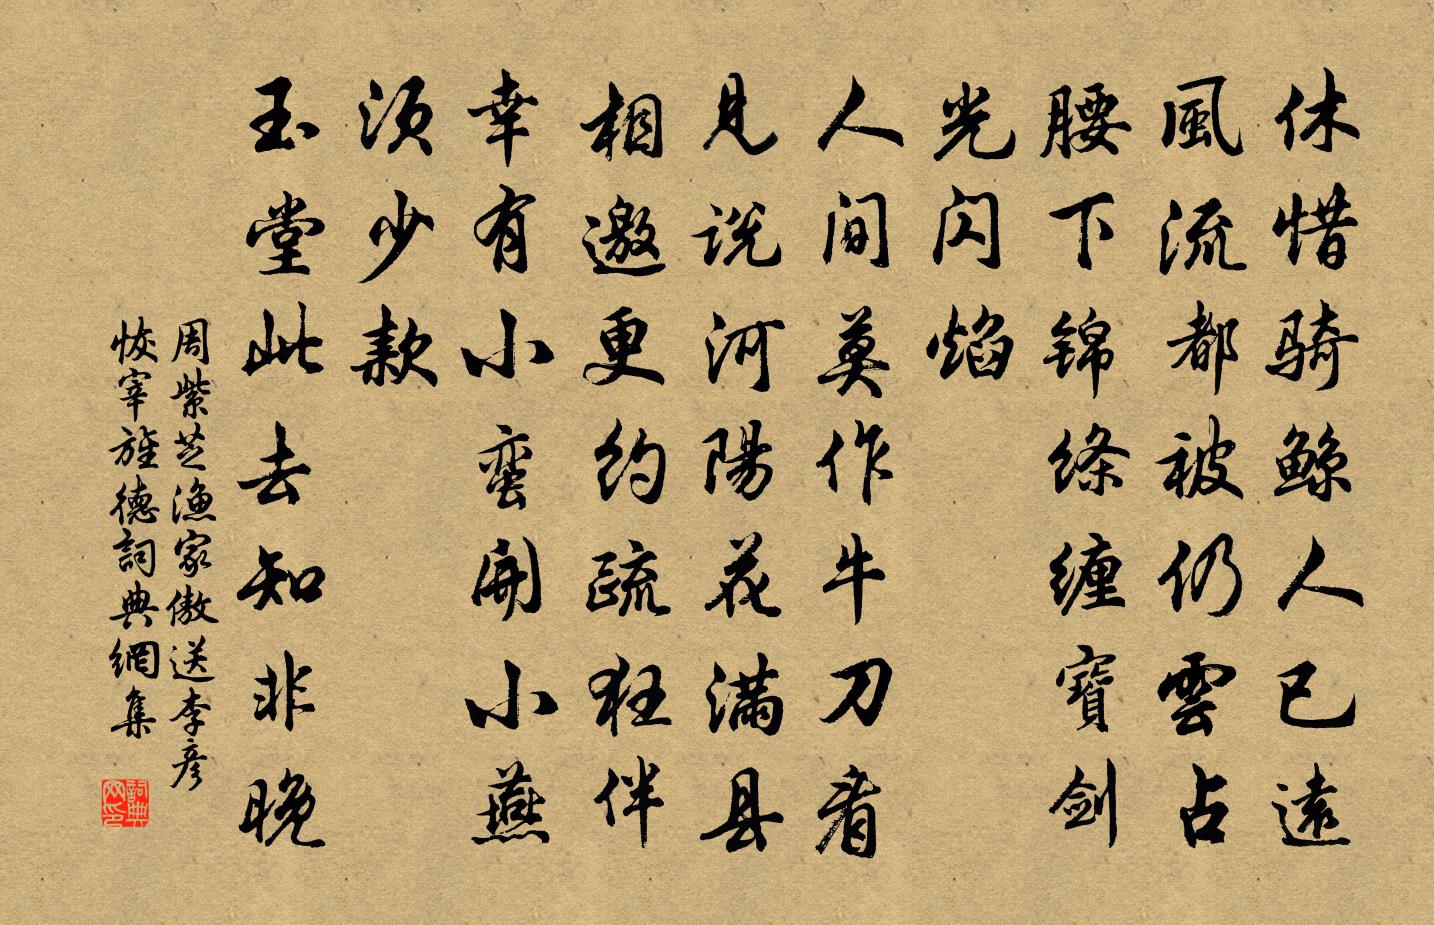 休惜騎鯨人已遠
風流都被仍雲占
腰下锦絛缠寶劍
光闪焰
人间莫作牛刀看
見说河陽花满县
相邀更约疏狂伴
幸有小蛮開小燕
须少款
玉堂此去知非晚
周紫芝漁家傲送李彦
恢宰旌德詞典網集